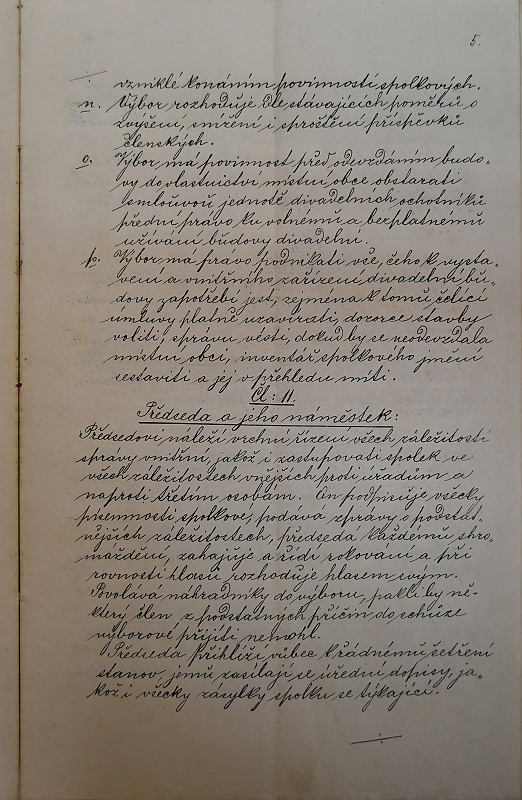 5.
vzniklé konáním povinností spolkových.
n. Výbor rozhoduje dle stávajících poměrů o
zvýšení, snížení i sproštění příspěvků
členských.
o. Výbor má povinnost před odevzdáním budo-
vy do vlastnictví místní obce obstarati
smlouvou jednotě divadelních ochotníků
přední právo ku volnému a bezplatnému
užívání budovy divadelní.
p. Výbor má právo podnikati vše, čeho k vysta-
vení a vnitřního zařízení divadelní bu-
dovy zapotřebí jest, zejména k tomu čelící
úmluvy platně uzavírati, dozorce stavby
voliti, správu vésti, dokud by se neodevzdala
místní obci, inventář spolkového jmění
sestaviti a jej v přehledu míti.
Čl: 11.
Předseda a jeho náměstek:
Předsedovi náleží vrchní řízení všech záležitostí
správy vnitřní, jakož i zastupovati spolek ve
všech záležitostech vnějších proti úřadům a
naproti třetím osobám. On podpisuje všecky
písemnosti spolkové, podává zprávy o podstat-
nějších záležitostech, předsedá každému shro-
máždění, zahajuje a řídí rokování a při
rovnosti hlasů rozhoduje hlasem svým.
Povolává náhradníky do výboru, pakli by ně-
který člen z podstatných příčin do schůze
výborové přijíti nemohl.
Předseda přihlíží vůbec k řádnému šetření
stanov, jemu zasílají se úřední dopisy, ja-
kož i všecky zásylky spolku se týkající.